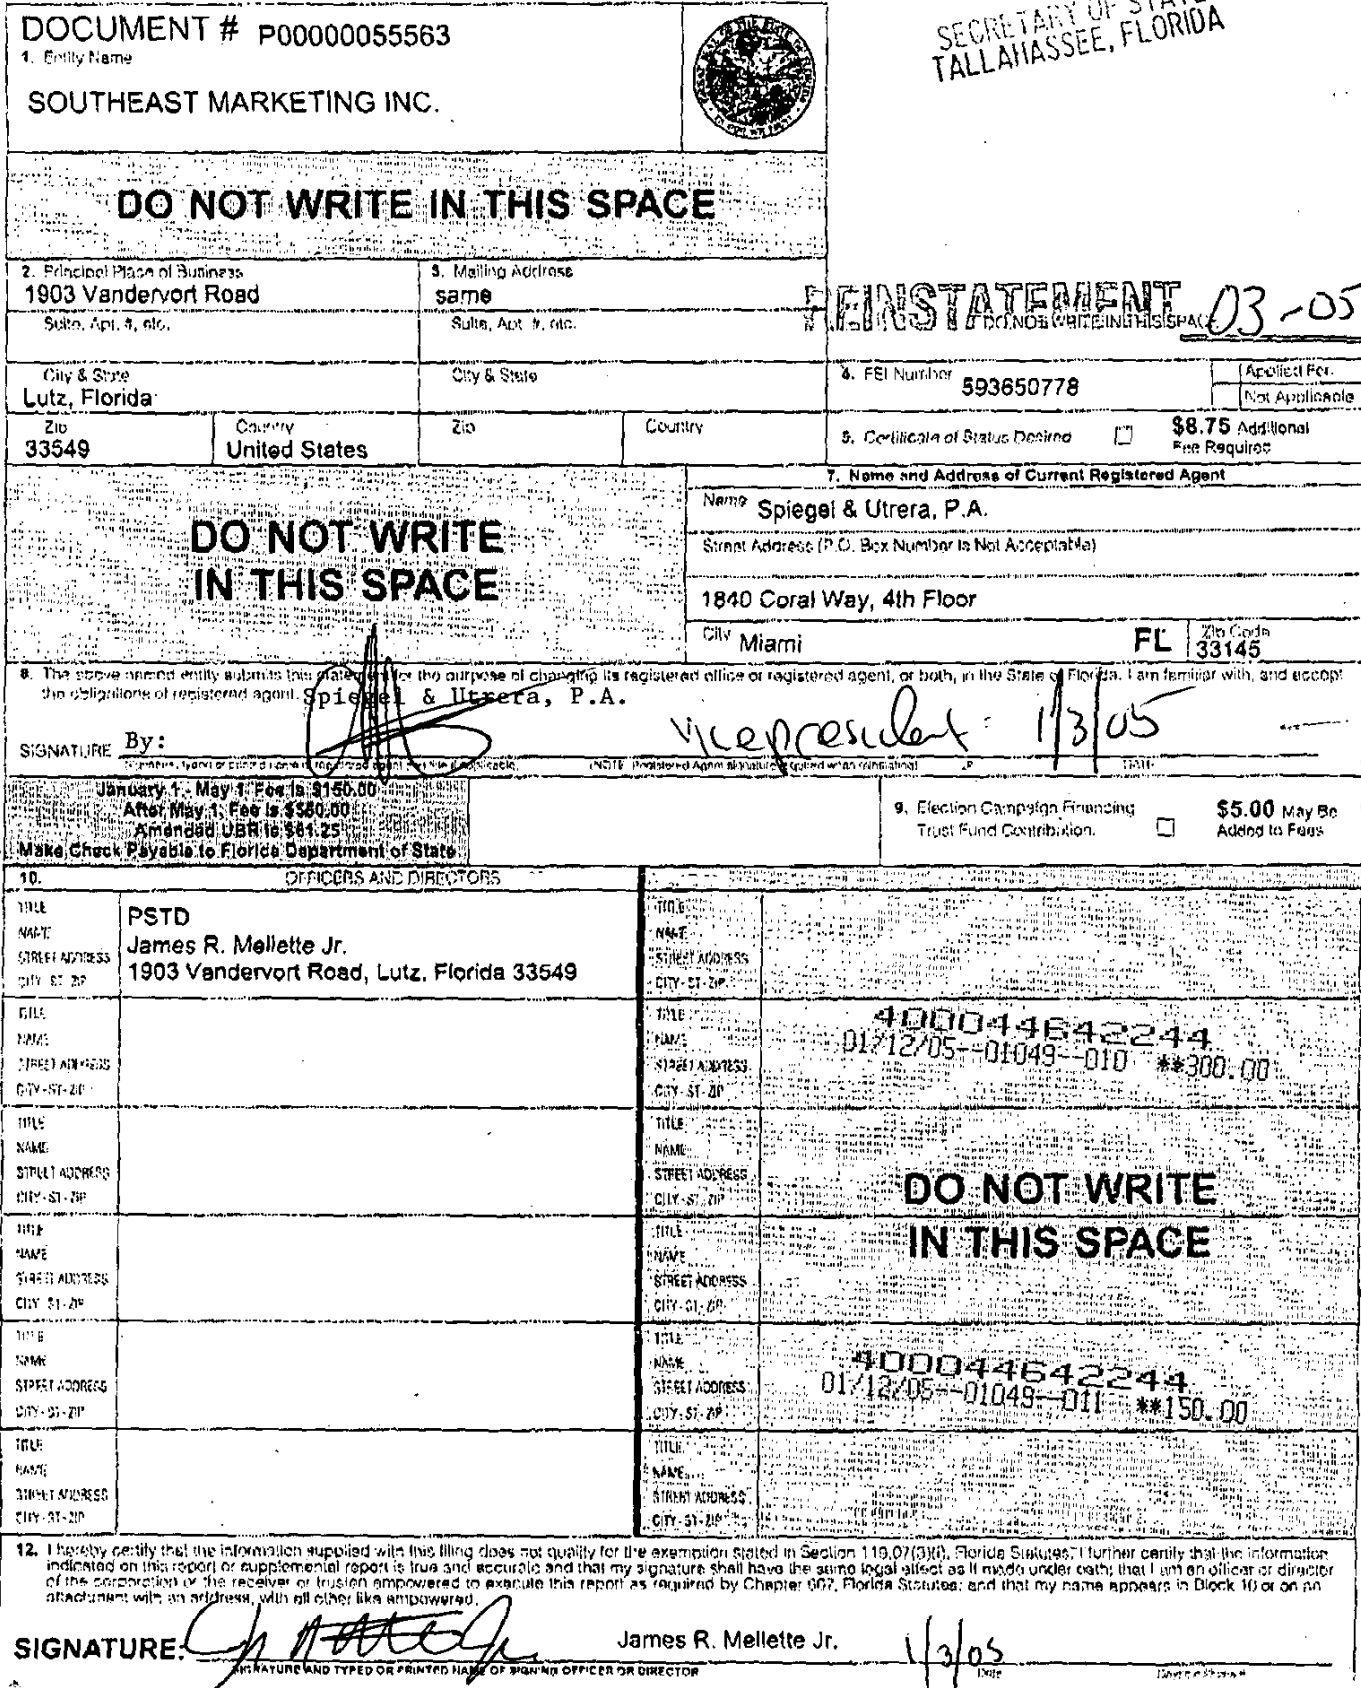 DOCUMENT # P00000055563
SECRETARY OF STATE
TALLAHASSEE, FLORIDA
1. Entity Name
SOUTHEAST MARKETING INC.
DO NOT WRITE IN THIS SPACE
2. Principal Place of Business
3. Mailing Address
1903 Vandervort Road
same
Suite, Apt. #, etc.
Suite, Apt. #, etc.
REINSTATEMENT 03-05
DO NOT WRITE IN THIS SPACE
City & State
City & State
Lutz, Florida
4. FEI Number 593650778
Applied For
Not Applicable
Zip
Country
Zip
Country
33549
United States
5. Certificate of Status Desired
$8.75 Additional
Fee Required
7. Name and Address of Current Registered Agent
Name Spiegel & Utrera, P.A.
DO NOT WRITE
IN THIS SPACE
Street Address (P.O. Box Number Is Not Acceptable)
1840 Coral Way, 4th Floor
City Miami FL Zip Code 33145
8. The above named entity submits this statement for the purpose of changing its registered office or registered agent, or both, in the State of Florida. I am familiar with, and accept
the obligations of registered agent. Spiegel & Utrera, P.A.
SIGNATURE By: Vice president 1/3/05
Signature, typed or printed name of registered agent and title if applicable. (NOTE: Registered Agent signature required when reinstating) DATE
January 1 - May 1 Fee is $150.00
After May 1, Fee is $550.00
Amended UBR is $61.25
Make Check Payable to Florida Department of State
9. Election Campaign Financing
Trust Fund Contribution.
$5.00 May Be
Added to Fees
10. OFFICERS AND DIRECTORS
TITLE PSTD
NAME James R. Mellette Jr.
STREET ADDRESS 1903 Vandervort Road, Lutz, Florida 33549
CITY-ST-ZIP
TITLE
NAME
STREET ADDRESS
CITY-ST-ZIP
TITLE
NAME
STREET ADDRESS
CITY-ST-ZIP
TITLE
NAME
STREET ADDRESS
CITY-ST-ZIP
TITLE
NAME
STREET ADDRESS
CITY-ST-ZIP
TITLE
NAME
STREET ADDRESS
CITY-ST-ZIP
TITLE
NAME
STREET ADDRESS
CITY-ST-ZIP
TITLE 400044642244
NAME 01/12/05--01049--010 **300.00
STREET ADDRESS
CITY-ST-ZIP
TITLE
NAME
STREET ADDRESS
CITY-ST-ZIP
DO NOT WRITE
IN THIS SPACE
TITLE
NAME
STREET ADDRESS
CITY-ST-ZIP
TITLE
NAME 400044642244
STREET ADDRESS 01/12/05--01049--011 **150.00
CITY-ST-ZIP
TITLE
NAME
STREET ADDRESS
CITY-ST-ZIP
12. I hereby certify that the information supplied with this filing does not qualify for the exemption stated in Section 119.07(3)(i), Florida Statutes. I further certify that the information
indicated on this report or supplemental report is true and accurate and that my signature shall have the same legal effect as if made under oath; that I am an officer or director
of the corporation or the receiver or trustee empowered to execute this report as required by Chapter 607, Florida Statutes; and that my name appears in Block 10 or on an
attachment with an address, with all other like empowered.
SIGNATURE: James R. Mellette Jr. 1/3/05
SIGNATURE AND TYPED OR PRINTED NAME OF SIGNING OFFICER OR DIRECTOR Date Daytime Phone #